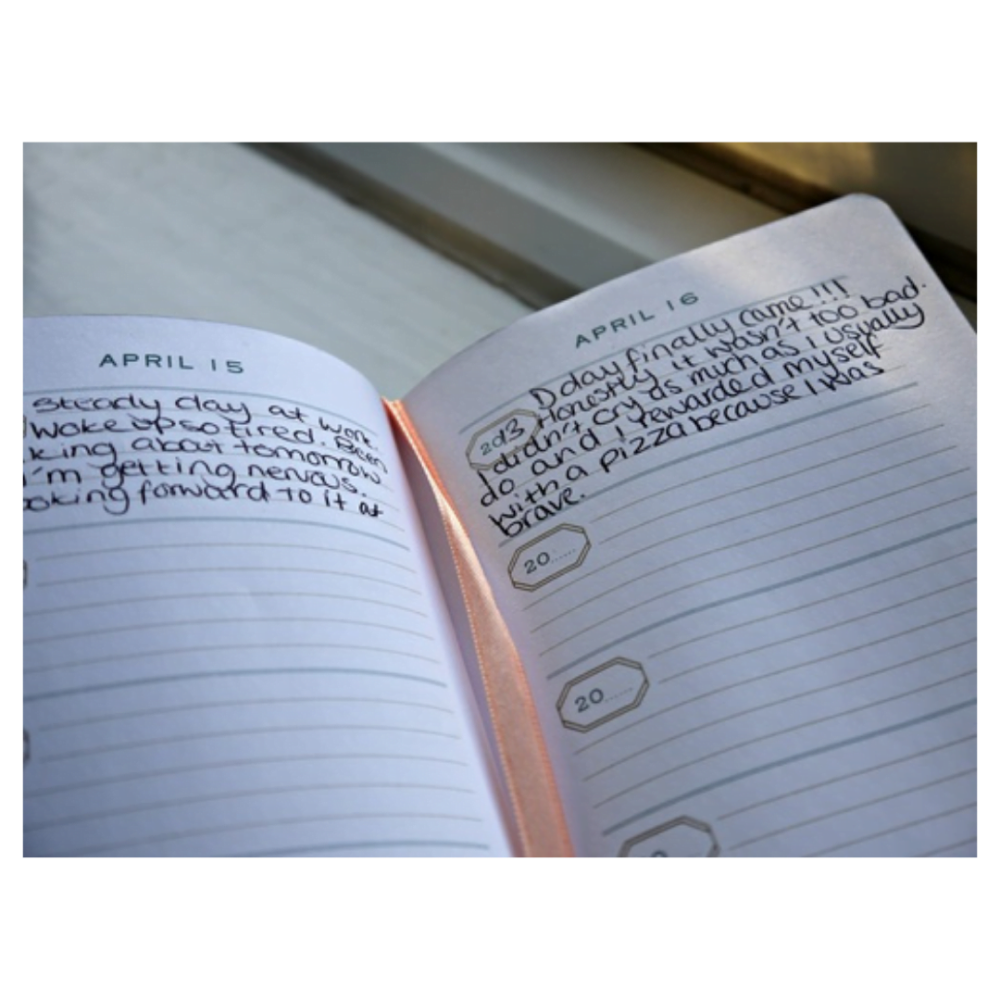 APRIL 15
Steady day at work.
Woke up so tired. Been
king about tomorrow
i'm getting nervous.
oking forward to it at
APRIL 16
D day finally came !!!
Honestly it wasn't too bad.
I didn't cry as much as i usually
do and I rewarded myself
with a pizza because I was
brave.
20
20